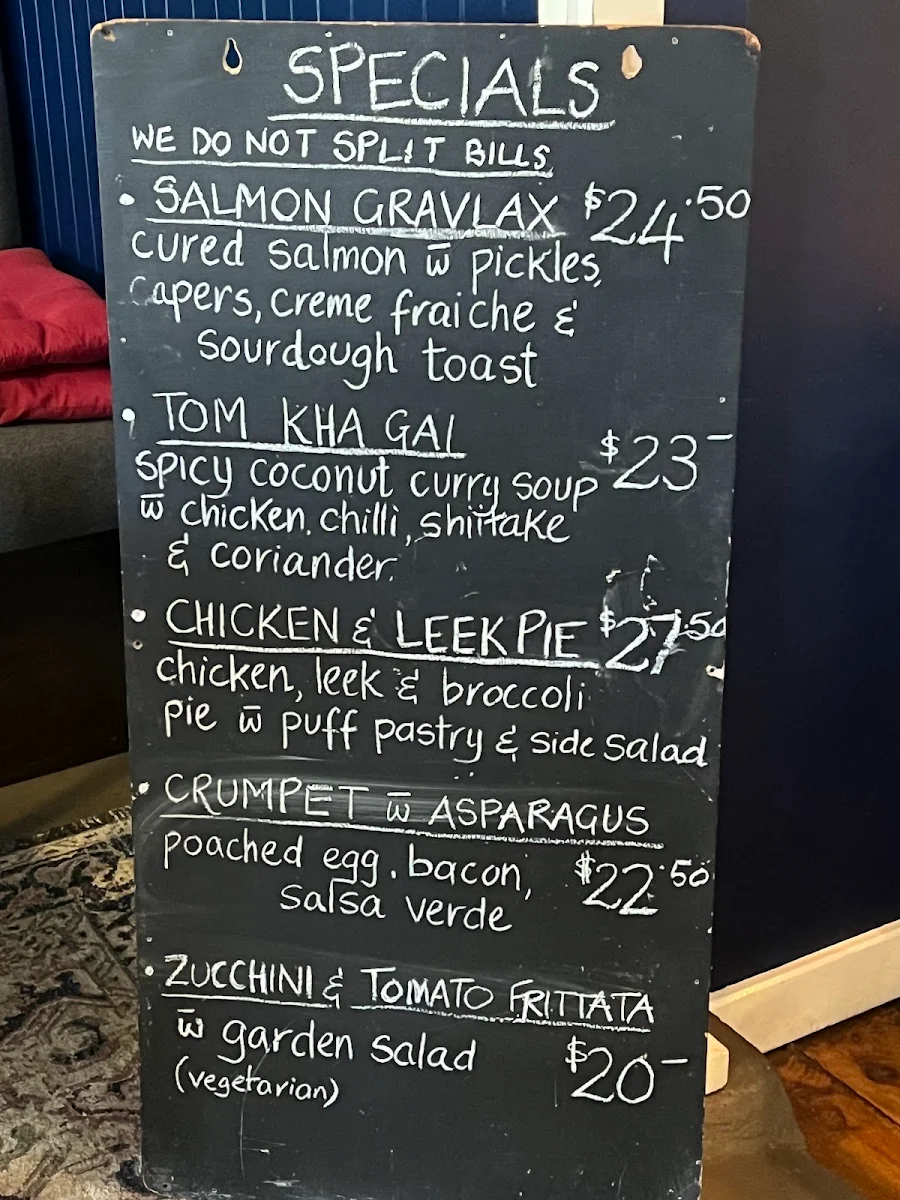 SPECIALS
WE DO NOT SPLIT BILLS
• SALMON GRAVLAX $24.50
cured salmon w̅ pickles,
capers, creme fraiche &
sourdough toast
• TOM KHA GAI
$23-
spicy coconut curry soup
w̅ chicken. chilli, shittake
& coriander.
• CHICKEN & LEEK PIE $27.50
chicken, leek & broccoli
pie w̅ puff pastry & side salad
• CRUMPET w̅ ASPARAGUS
poached egg. bacon, $22.50
salsa verde
• ZUCCHINI & TOMATO FRITTATA
w̅ garden salad $20-
(vegetarian)